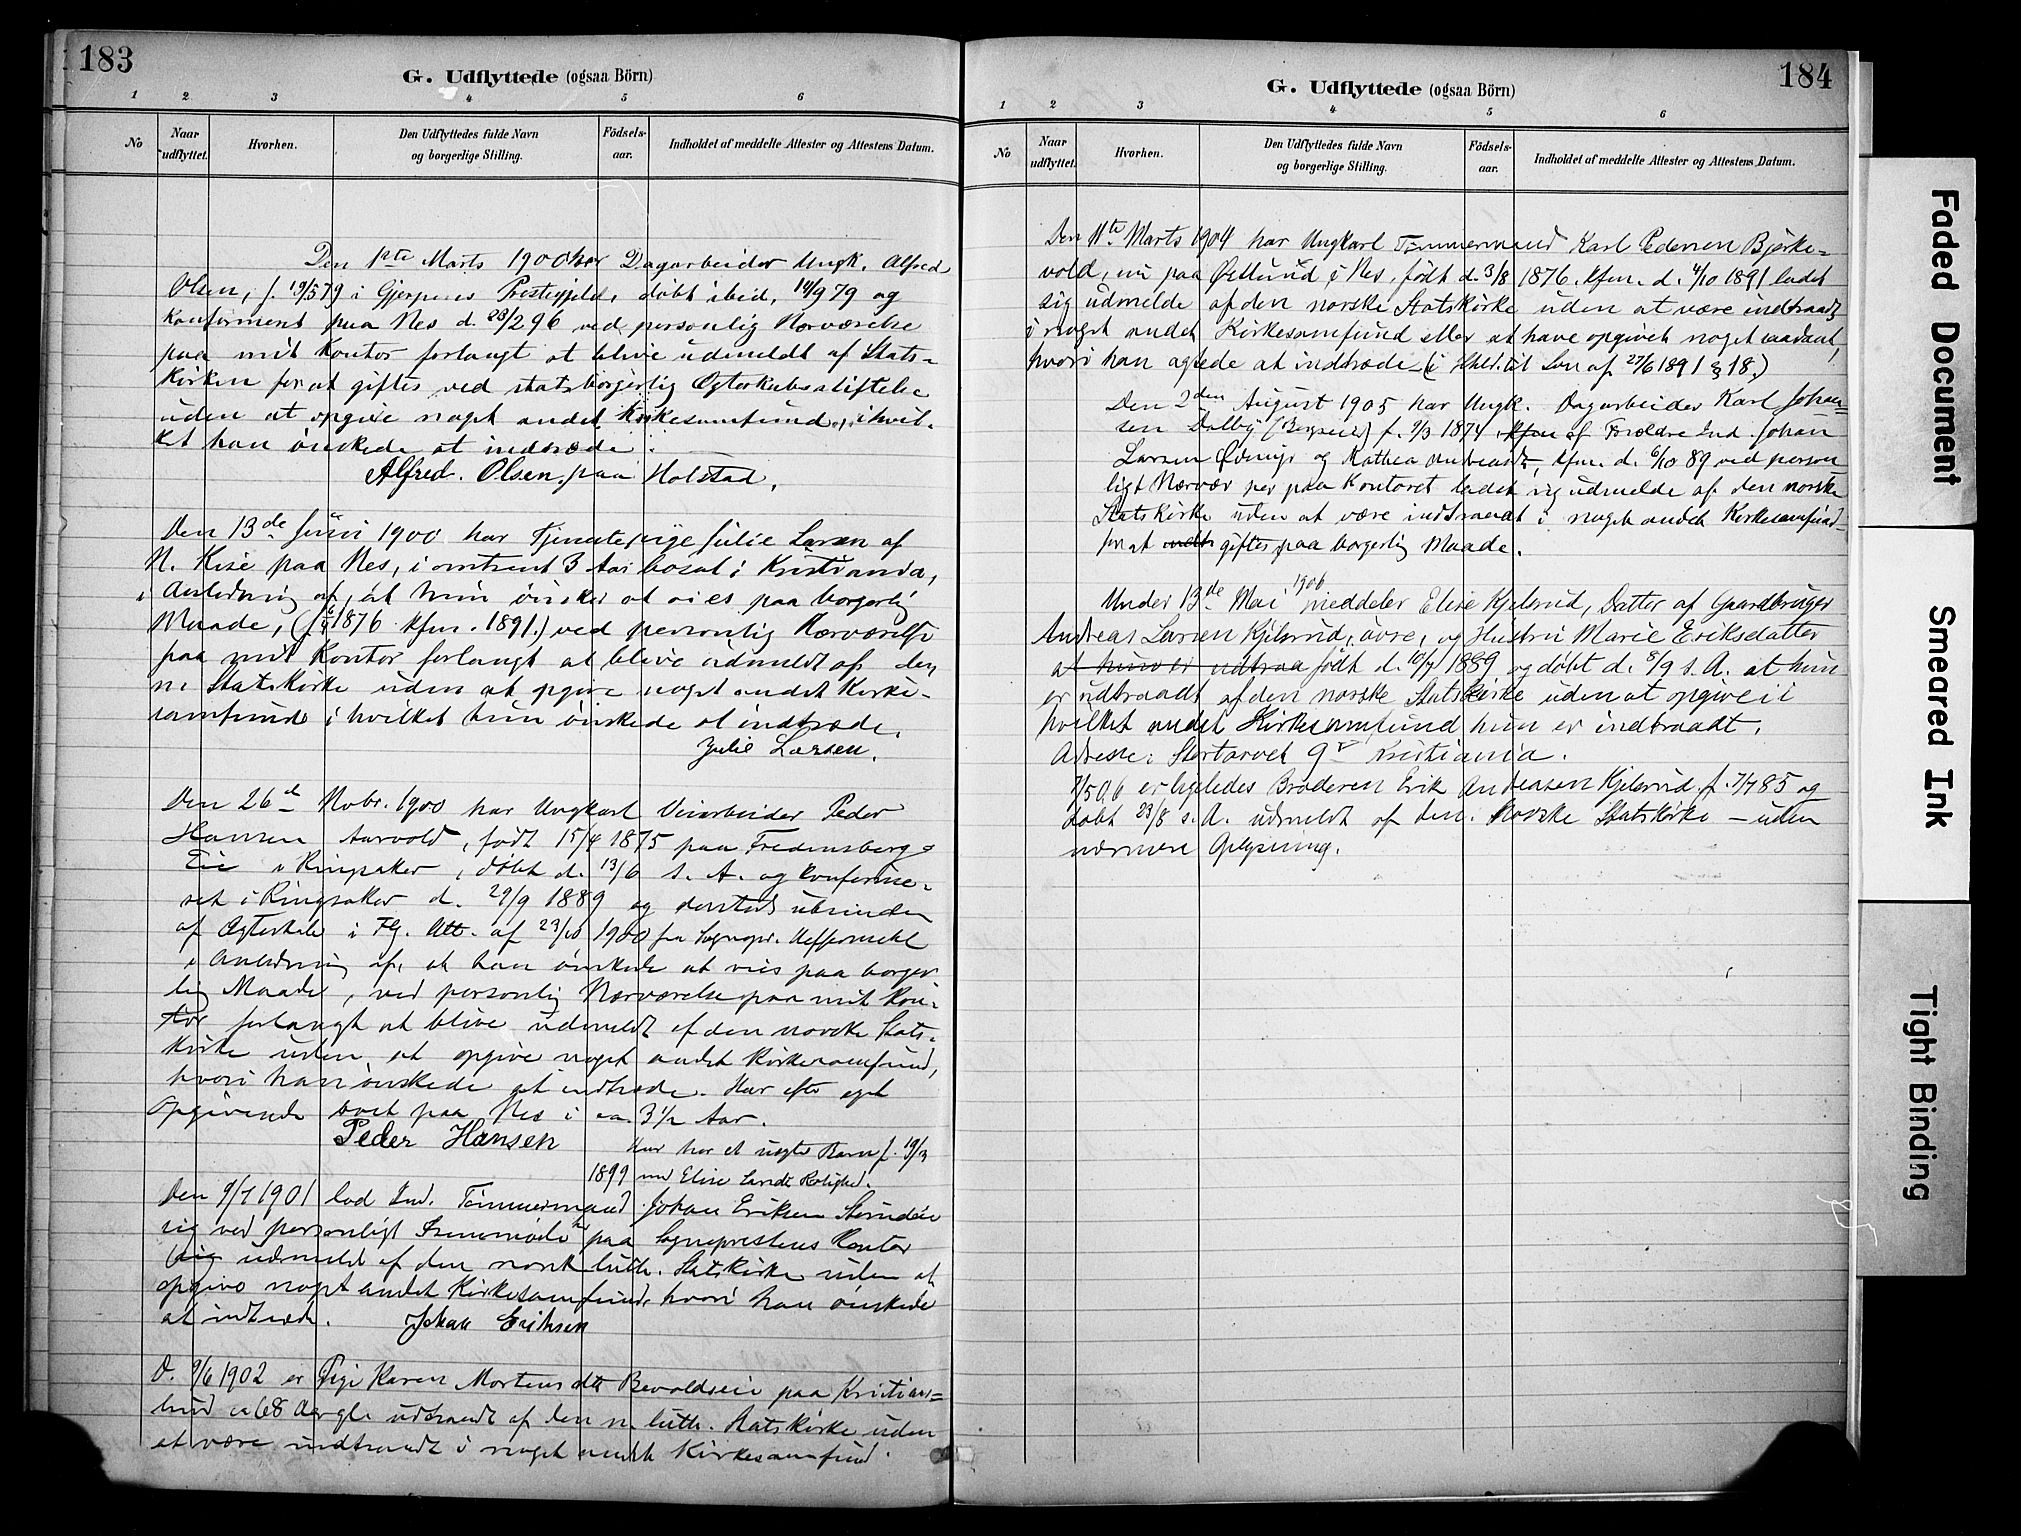 183
G. Udflyttede (ogsaa Börn)
1 2 3 4 5 6
No
Naar udflyttet.
Hvorhen.
Den Udflyttedes fulde Navn og borgerlige Stilling.
Födsels-aar.
Indholdet af meddelte Attester og Attestens Datum.
Den 1ste Marts 1900 har Dagarbeider Ungk. Alfred
Olsen, f. 19/5 79 i Gjerpens Prestegjeld, døbt ibid, 14/9 79 og
Konfirment paa Nes d. 23/2 96 ved personlig Nærværelse
paa mit Kontor forlangt at blive udmeldt af Stats-
kirken for at giftes ved statsborgerlig Ægteskabsstiftelse
uden at opgive noget andet Kirkesamfund, i hvil-
ket han önskede at indtræde.
Alfred. Olsen. paa Holstad.
Den 13de Juni 1900 har Tjenestepige Julie Larsen af
N. Kise paa Nes, i omtrent 3 Aar bosat i Kristiania,
i Anledning af, at hun önsker at vies paa borgerlig
Maade, (f. 1876 Kfm. 1891.) ved personlig Nærværelse
paa mit Kontor forlangt at blive udmeldt af den
n. Statskirke uden at opgive noget andet Kirke-
samfund i hvilket hun önskede at indtræde.
Julie Larsen.
Den 26d Novbr. 1900 har Ungkarl Veiarbeider Peder
Hansen Aarvold, født 15/4 1875 paa Fredensberg
Eie i Ringsaker, døbt d. 13/6 s. A. og konfirme-
ret i Ringsaker d. 29/9 1889 og dersteds ubunden
af Ægteskab i Flg. Att. af 23/10 1900 fra Sognepr.
i Anledning af, at han önskede at vies paa borger
lig Maade, ved personlig Nærværelse paa mit Kon-
tor forlangt at blive udmeldt af den norske Stats-
kirke uden at opgive noget andet Kirkesamfund,
hvori han önskede at indtræde. Har efter eget
Opgivende boet paa Nes i ca. 3 1/2 Aar.
Peder Hansen
Han har et uægte Barn f. 19/3
1899 med Elise
Den 9/7 1901 lod Ind. Tömmermand Johan Eriksen
sig ved personligt Fremmöde paa Sogneprestens Kontor
udmelde af den norsk luth. Statskirke uden at
opgive noget andet Kirkesamfund, hvori han önskede
at indtræde. Johan Eriksen
D. 9/6 1902 er Pige Karen Mortensdtr Bevoldseie paa Kristians-
lund ca 68 Aar gl. udtraadt af den n. luth. Statskirke uden
at være indtraadt i noget andet Kirkesamfund.
184
G. Udflyttede (ogsaa Börn)
1 2 3 4 5 6
No
Naar udflyttet.
Hvorhen.
Den Udflyttedes fulde Navn og borgerlige Stilling.
Födsels-aar.
Indholdet af meddelte Attester og Attestens Datum.
Den 11te Marts 1904 har Ungkarl Tömmermand Karl Pedersen Bjerke-
vold, nu paa Østlund i Nes, født d. 3/8 1876. Kfm. d. 4/10 1891 ladet
sig udmelde af den norske Statskirke uden at være indtraadt
i noget andet Kirkesamfund eller at have opgivet noget saadant,
hvori han agtede at indtræde (i Hhld. til Lov af 27/6 1891 § 18.)
Den 2den August 1905 har Ungk. Dagarbeider Karl Johan-
sen Dalby f. 9/3 1874 kfm af Forældre Ind. Johan
Larsen og Mathea Andreasdt, Kfm. d. 6/10 89 ved person-
ligt Nærvær per paa Kontoret ladet sig udmelde af den norske
Statskirke uden at være indtraadt i noget andet Kirkesamfund
for at indt giftes paa borgerlig Maade.
Under 13de Mai 1906 meddeler Elise Kjelsrud, Datter af Gaardbruger
Andreas Larsen Kjelsrud, övre, og Hustru Marie Eriksdatter
at hun er udtraa født d. 10/7 1889 og døbt d. 8/9 s. A. at hun
er udtraadt af den norske Statskirke uden at opgive i
hvilket andet Kirkesamfund hun er indtraadt.
Adresse: Stortorvet 9 Kristiania.
7/5 06 er ligeledes Broderen Erik Andreasen Kjelsrud f. 7/7 85 og
döbt 23/8 s. A. udmeldt af den norske Statskirke – uden
nærmere Oplysning.
Faded Document
Smeared Ink
Tight Binding